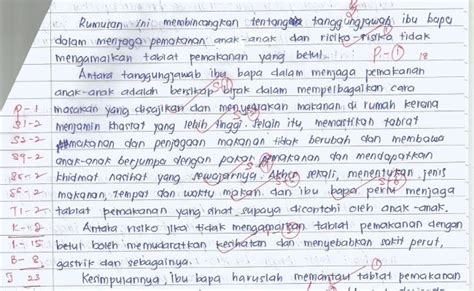 Rumusan ini membincangkan tentang tanggungjawab ibu bapa
dalam menjaga pemakanan anak-anak dan risiko-risiko tidak
mengamalkan tabiat pemakanan yang betul. P-① 18
Antara tanggungjawab ibu bapa dalam menjaga pemakanan
anak-anak adalah bersikap bijak dalam mempelbagaikan cara
P-1 masakan yang disajikan dan menyediakan makanan di rumah kerana
S1-2 menjamin khasiat yang lebih tinggi. Selain itu, memastikan tabiat
S2-2 pemakanan dan penjagaan makanan tidak berubah dan membawa
anak-anak berjumpa dengan pakar pemakanan dan mendapatkan
khidmat nasihat yang sewajarnya. Akhir sekali, menentukan jenis
makanan, tempat dan waktu makan dan ibu bapa perlu menjaga
T1-2 tabiat pemakanan yang sihat supaya dicontohi oleh anak-anak.
Antara risiko jika tidak mengamalkan tabiat pemakanan dengan
I-15 betul boleh memudaratkan kesihatan dan menyebabkan sakit perut,
B-8 gastrik dan sebagainya.
J 23 Kesimpulannya, ibu bapa haruslah memantau tabiat pemakanan